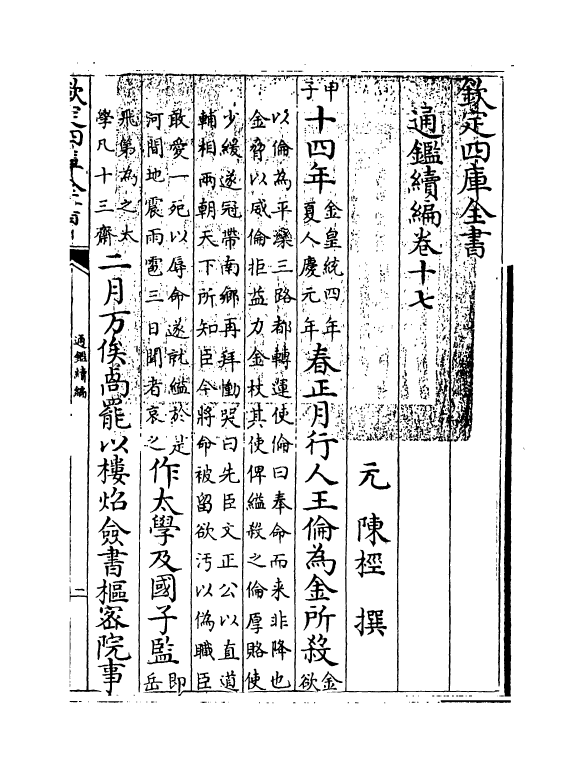 欽定四庫全書
通鑑續編卷十七
元 陳桱 撰
甲子
十四年
金皇統四年
夏人慶元年
春正月行人王倫為金所殺
金欲
以倫為平灤三路都轉運使倫曰奉命而来非降也
金脅以威倫拒益力金杖其使俾縊殺之倫厚賂使
少緩遂冠帶南鄉再拜慟哭曰先臣文正公以直道
輔相兩朝天下所知臣今將命被留欲汚以偽職臣
敢愛一死以辱命遂就縊於是
河間地震雨雹三日聞者哀之
作太學及國子監
即岳
飛第為之太
學凡十三齋
二月万俟卨罷以樓炤僉書樞密院事
欽定四庫全書
通鑑續編